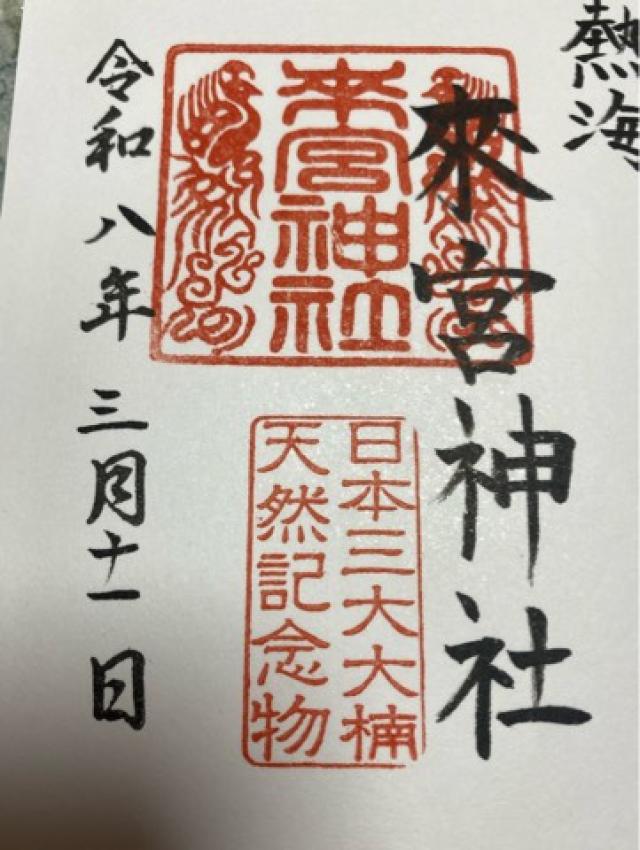 熱海
來宮神社
来宮神社
日本三大大楠
天然記念物
令和八年三月十一日